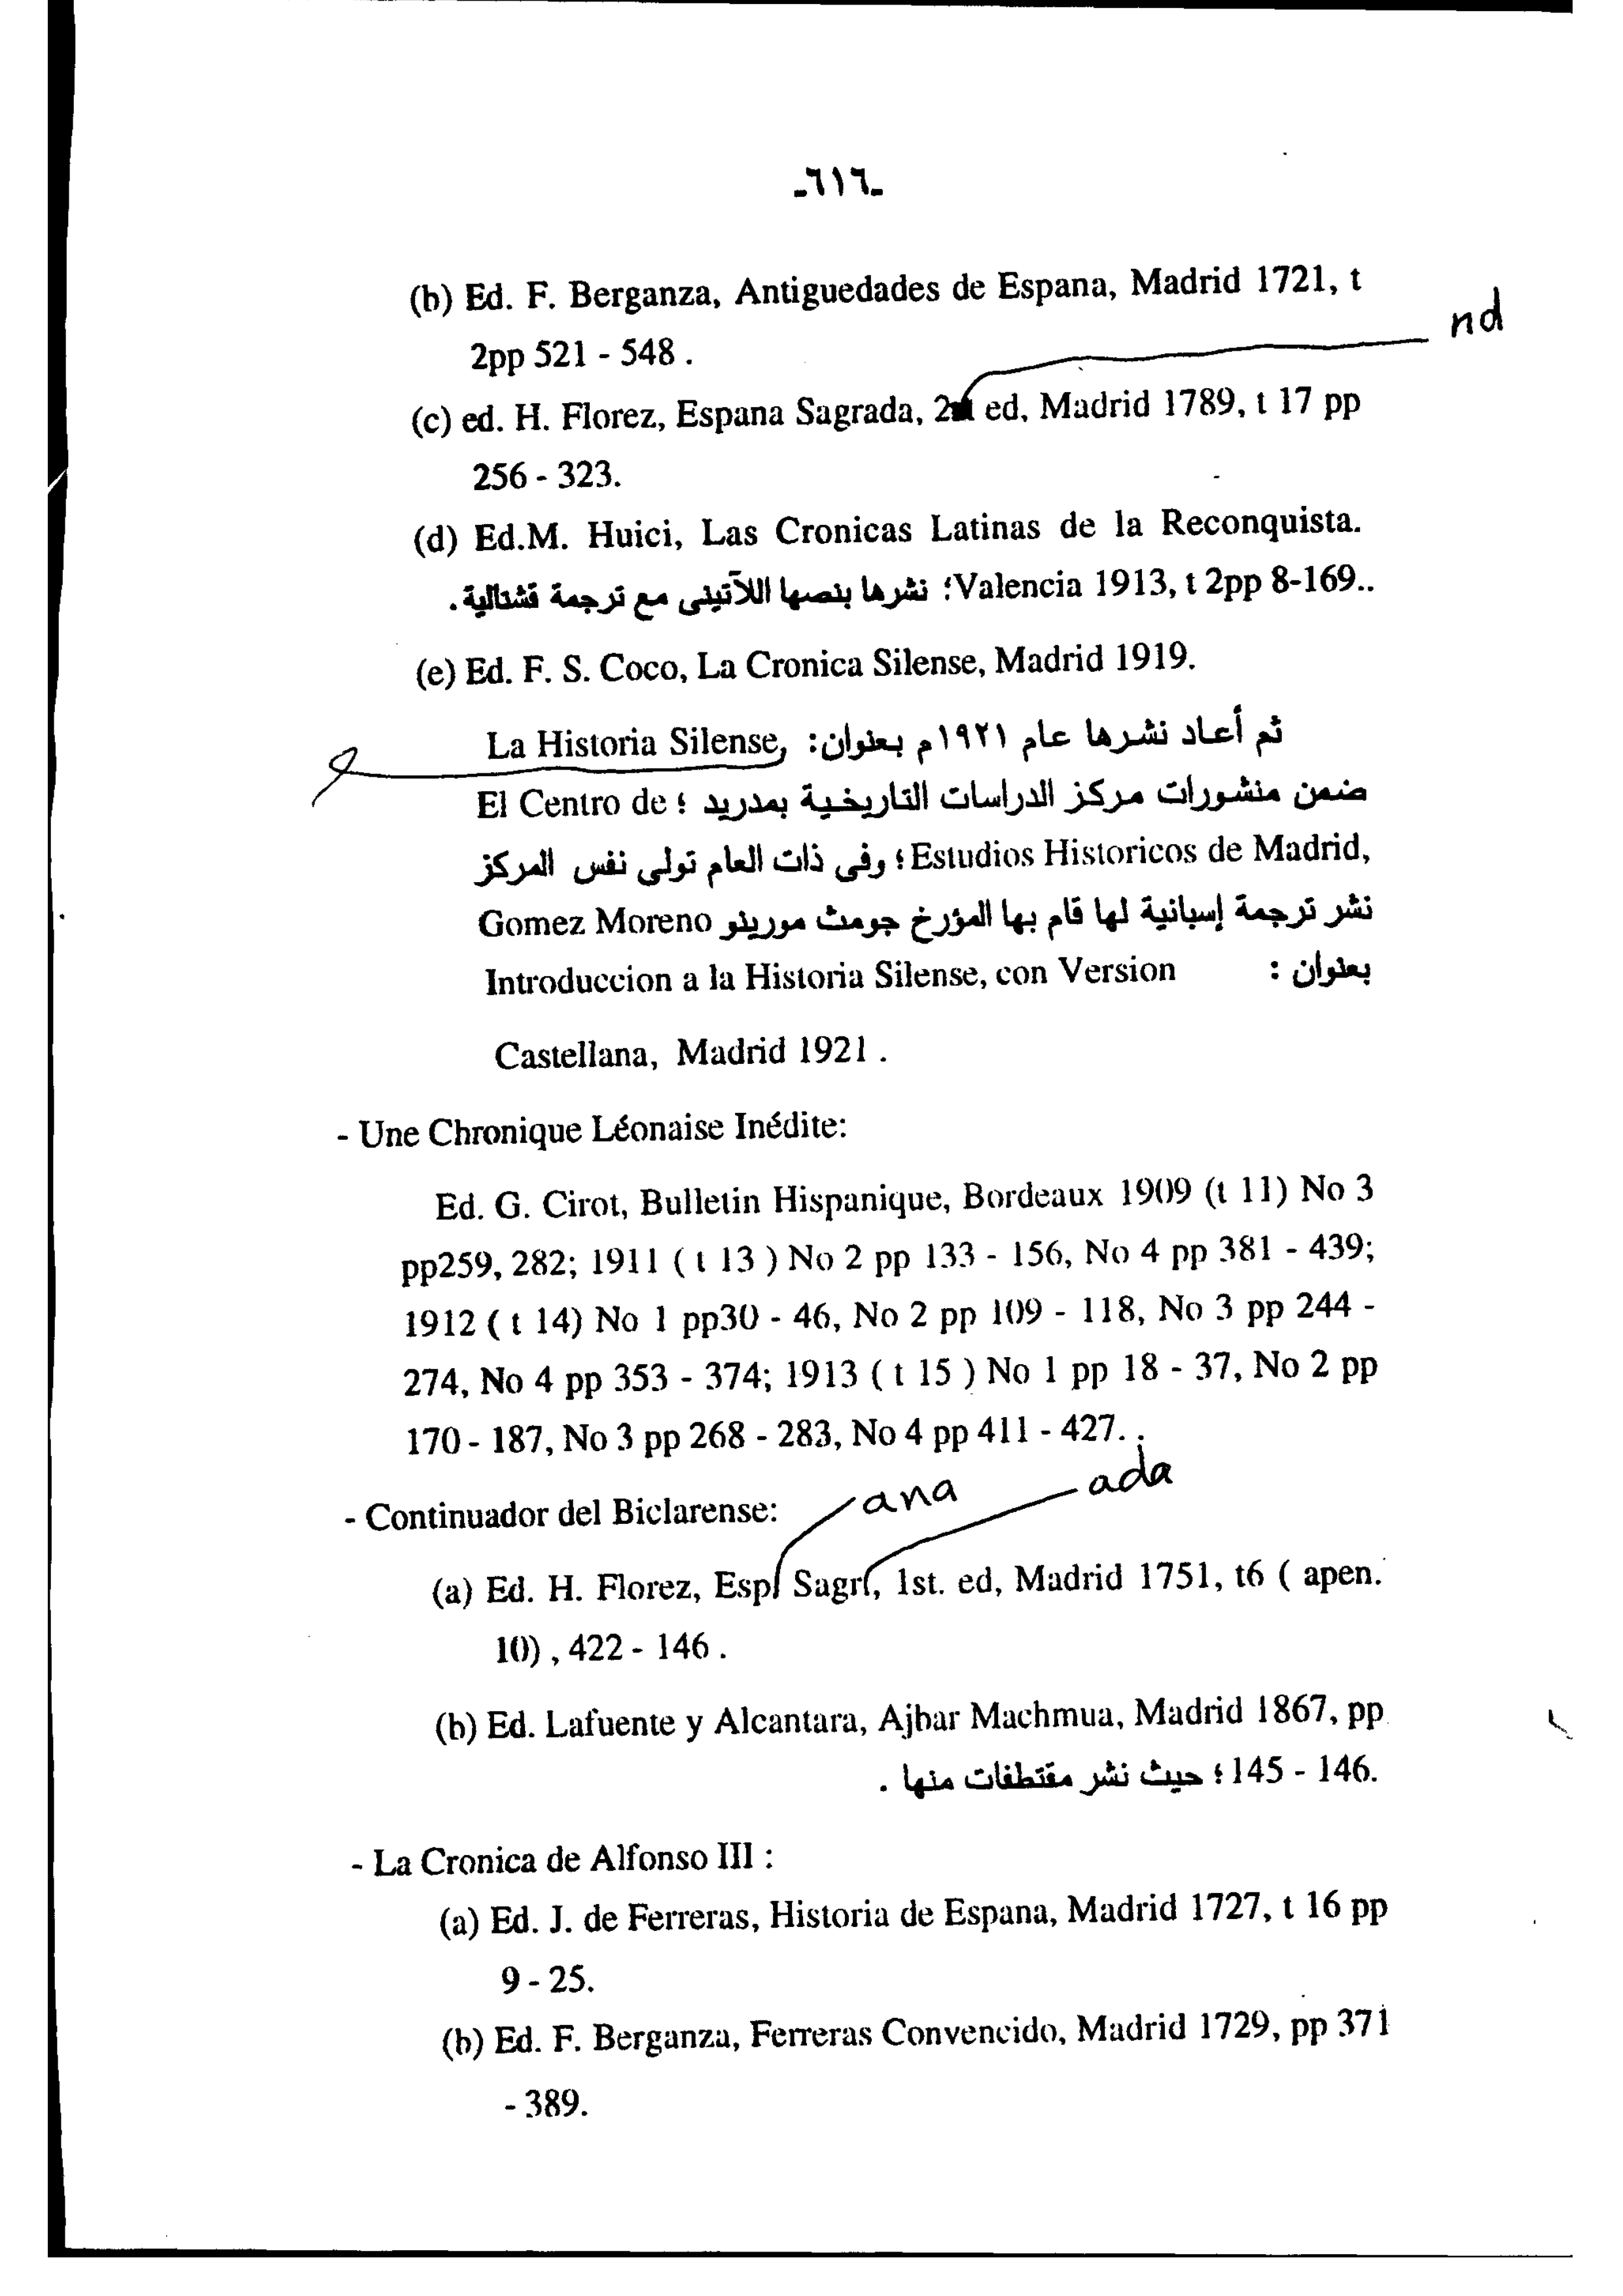 -٦١٦-
(b) Ed. F. Berganza, Antiguedades de Espana, Madrid 1721, t
nd
2pp 521 - 548 .
(c) ed. H. Florez, Espana Sagrada, 2 ed, Madrid 1789, t 17 pp
256 - 323.
(d) Ed.M. Huici, Las Cronicas Latinas de la Reconquista.
Valencia 1913, t 2pp 8-169.. ؛ نشرها بنصها اللآتينى مع ترجمة قشتالية .
(e) Ed. F. S. Coco, La Cronica Silense, Madrid 1919.
ثم أعاد نشرها عام ١٩٢١م بعنوان: La Historia Silense,
ضمن منشورات مركز الدراسات التاريخية بمدريد ؛ El Centro de
Estudios Historicos de Madrid, ؛ وفى ذات العام تولى نفس المركز
نشر ترجمة إسبانية لها قام بها المؤرخ جومث مورينو Gomez Moreno
بعنوان : Introduccion a la Historia Silense, con Version
Castellana, Madrid 1921 .
- Une Chronique Léonaise Inédite:
Ed. G. Cirot, Bulletin Hispanique, Bordeaux 1909 (t 11) No 3
pp259, 282; 1911 ( t 13 ) No 2 pp 133 - 156, No 4 pp 381 - 439;
1912 ( t 14) No 1 pp30 - 46, No 2 pp 109 - 118, No 3 pp 244 -
274, No 4 pp 353 - 374; 1913 ( t 15 ) No 1 pp 18 - 37, No 2 pp
170 - 187, No 3 pp 268 - 283, No 4 pp 411 - 427. .
ana ada
- Continuador del Biclarense:
(a) Ed. H. Florez, Esp Sagr, 1st. ed, Madrid 1751, t6 ( apen.
10) , 422 - 146 .
(b) Ed. Lafuente y Alcantara, Ajbar Machmua, Madrid 1867, pp
145 - 146. ؛ حيث نشر مقتطفات منها .
- La Cronica de Alfonso III :
(a) Ed. J. de Ferreras, Historia de Espana, Madrid 1727, t 16 pp
9 - 25.
(b) Ed. F. Berganza, Ferreras Convencido, Madrid 1729, pp 371
- 389.